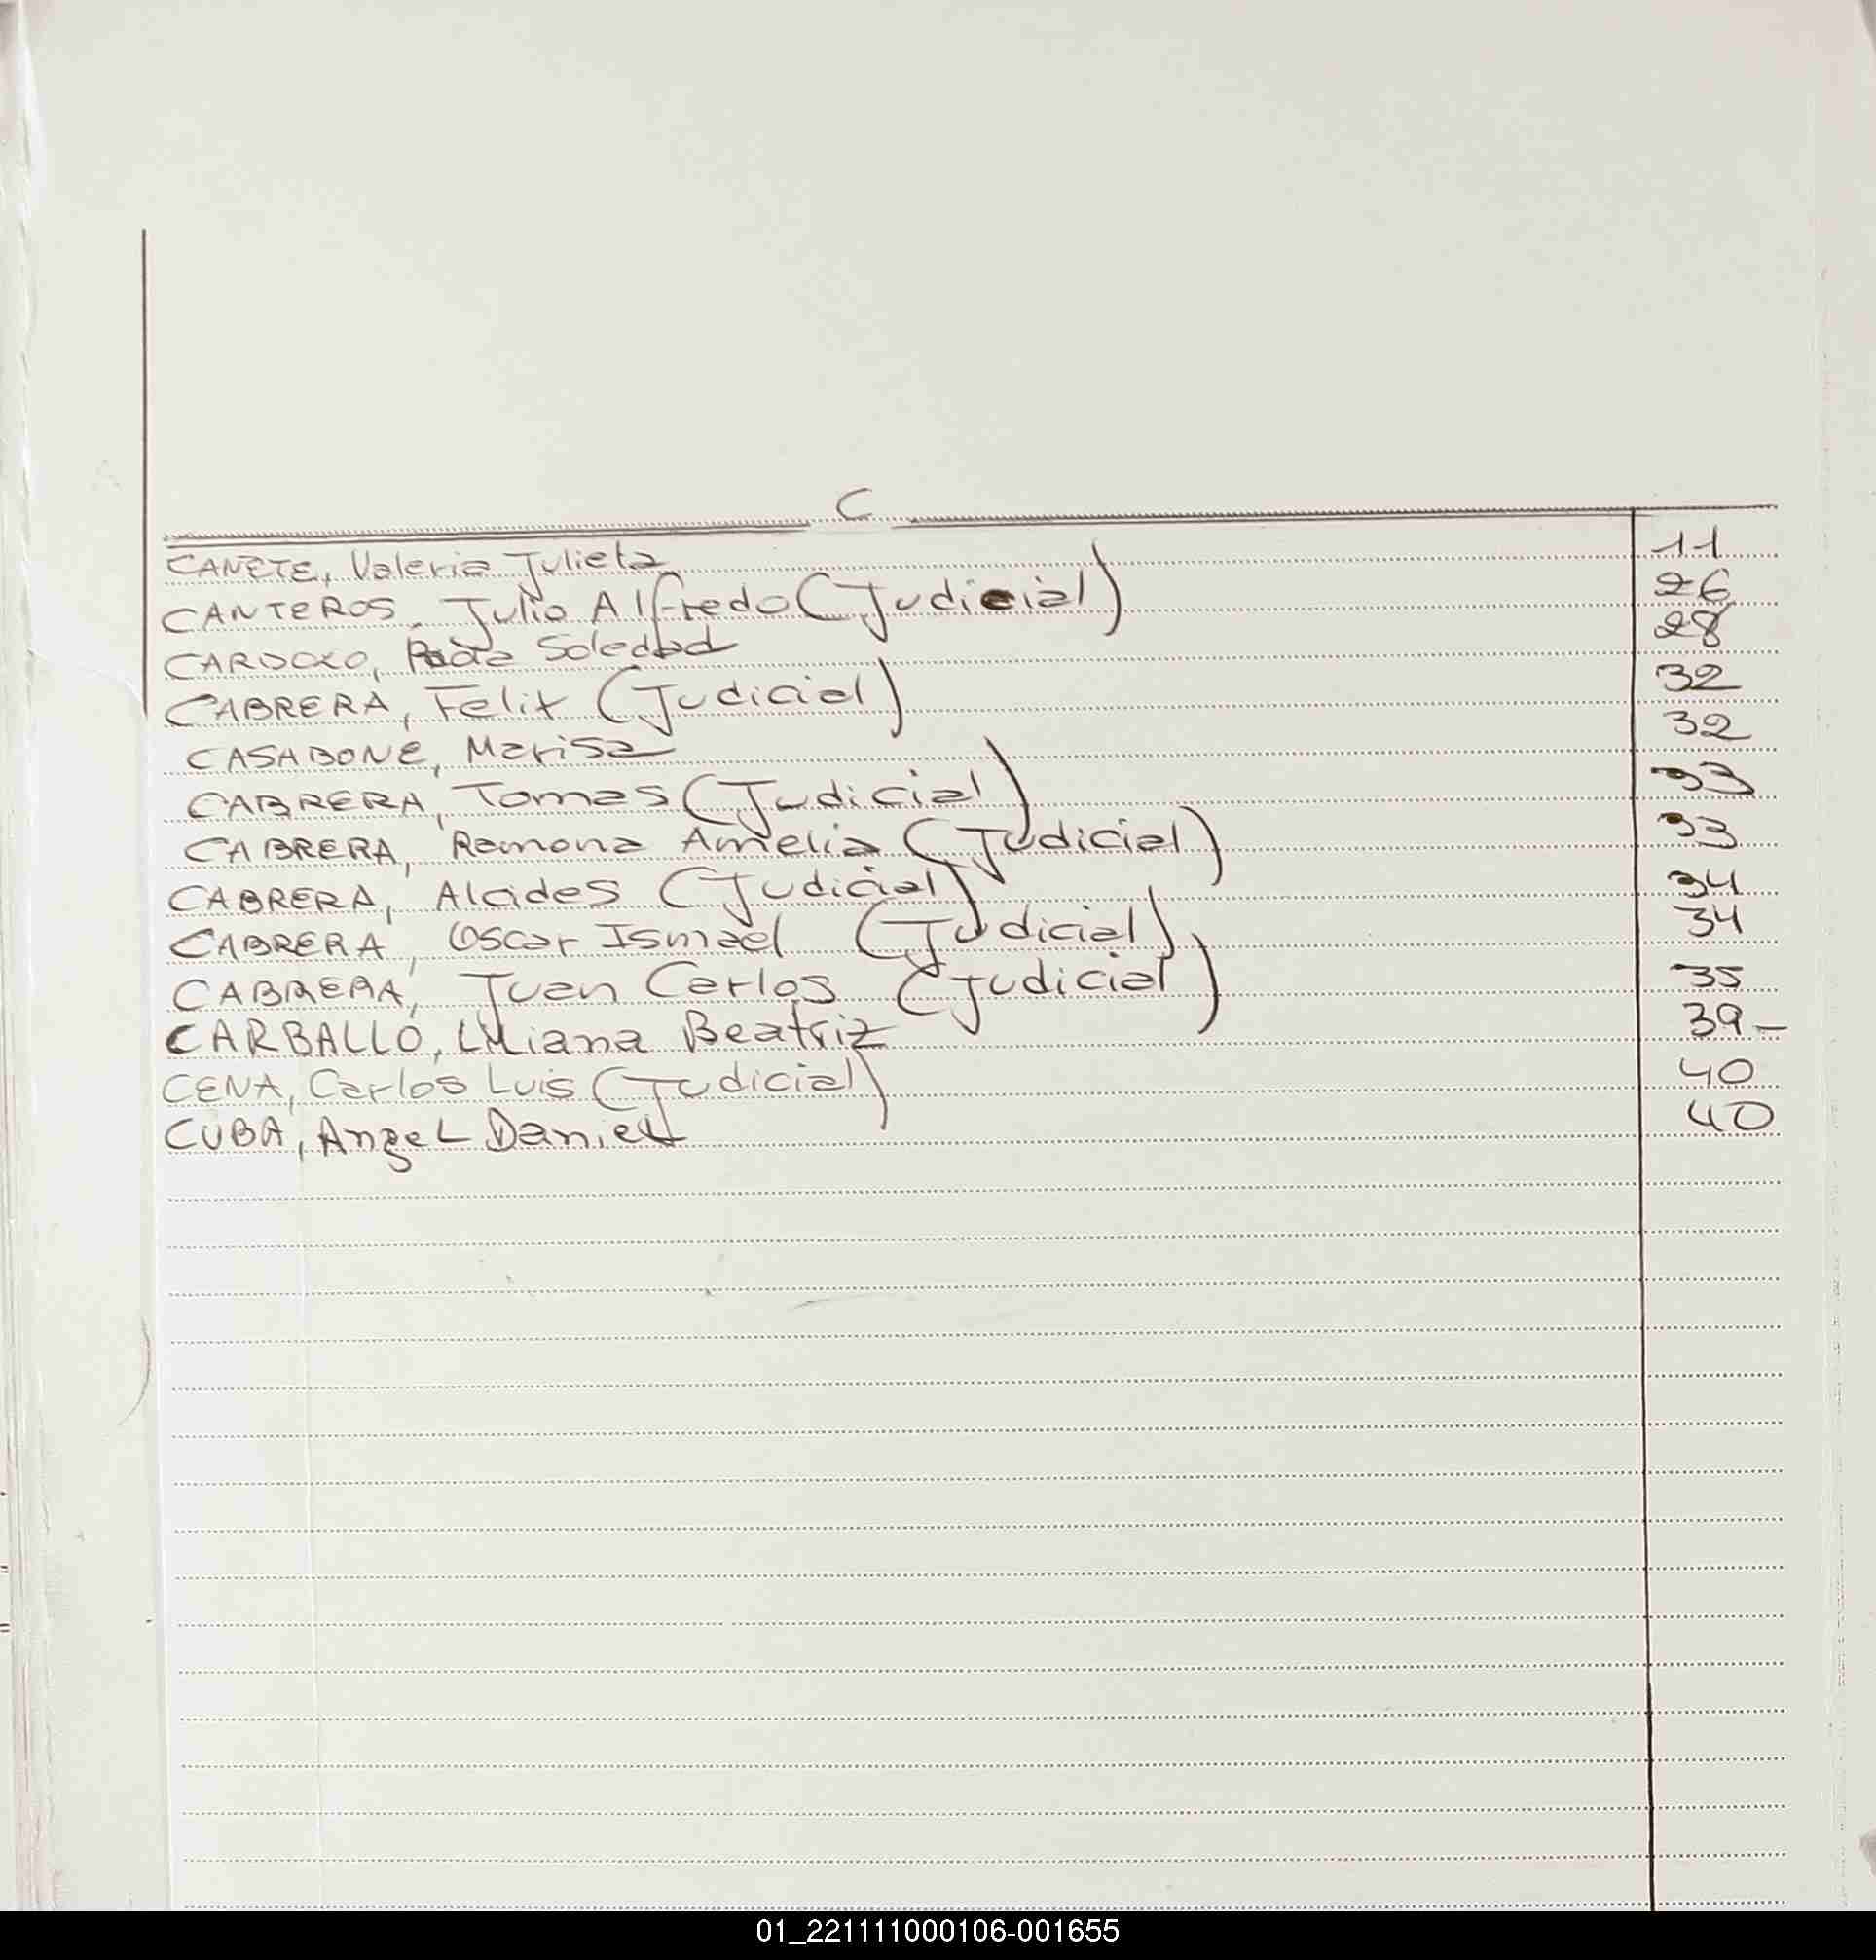 C
CAÑETE, Valeria Julieta 11
CANTEROS, Julio Alfredo (Judicial) 26
CARDOZO, Soledad 28
CABRERA, Felix (Judicial) 32
CASABONE, Marisa 32
CABRERA, Tomas (Judicial) 33
CABRERA, Ramona Amelia (Judicial) 33
CABRERA, Alcides (Judicial) 34
CABRERA, Oscar Ismael (Judicial) 34
CABRERA, Juan Carlos (Judicial) 35
CARBALLO, Liliana Beatriz 39-
CENA, Carlos Luis (Judicial) 40
CUBA, Angel Daniel 40
01_221111000106-001655